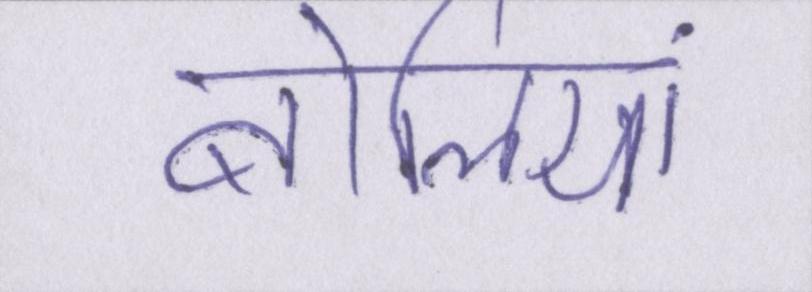 बोलियां